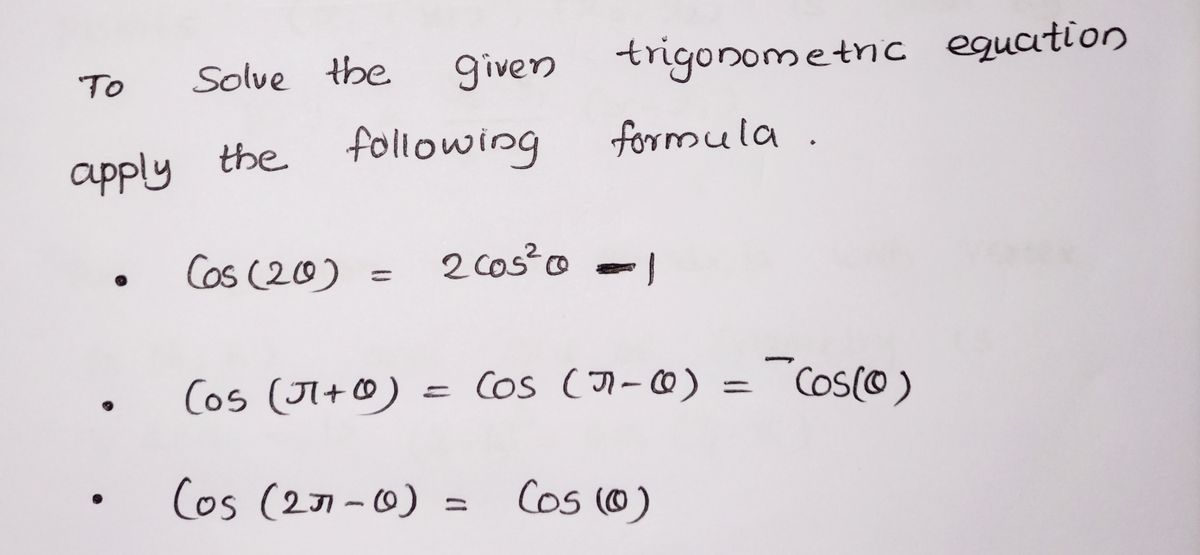 To Solve the given trigonometric equation
apply the following formula .
• Cos (2θ) = 2 cos²θ - 1
• Cos (π+θ) = Cos (π-θ) = -Cos(θ)
• Cos (2π-θ) = Cos (θ)